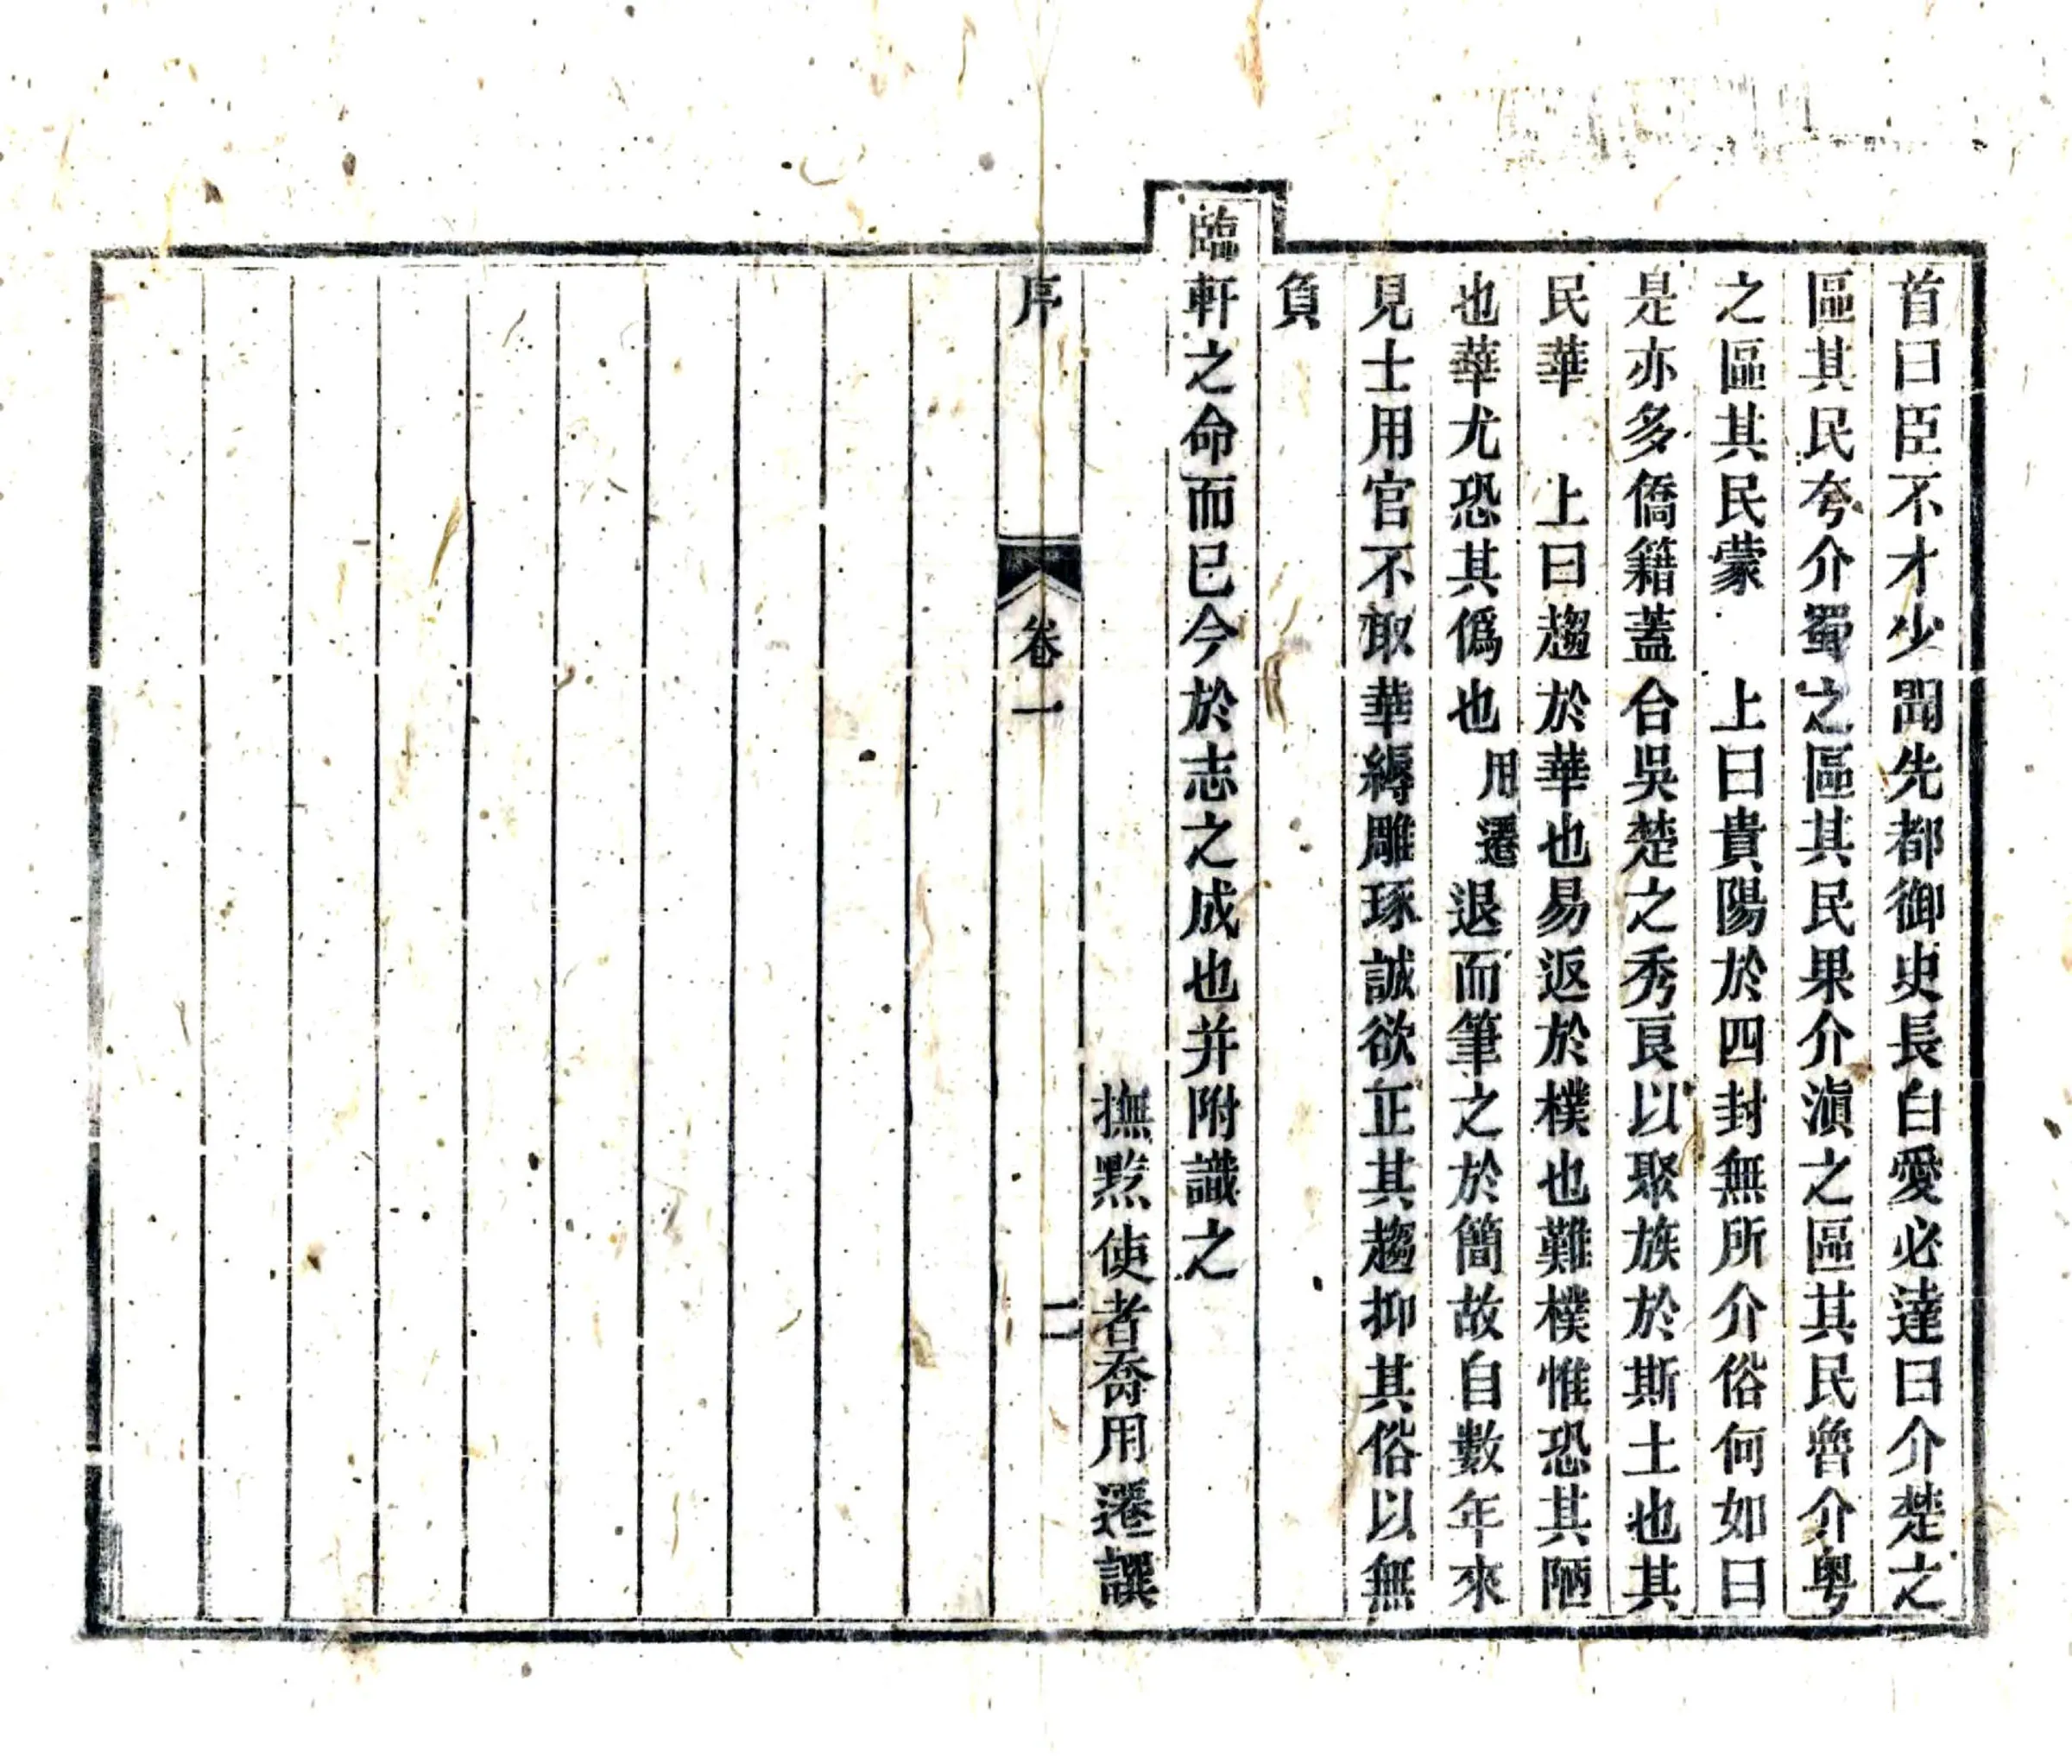 首曰臣不才少聞先都御史長白愛必達曰介楚之
區其民夸介蜀之區其民果介滇之區其民魯介粵
之區其民蒙　上曰貴陽於四封無所介俗何如曰
是亦多僑籍蓋台吳楚之秀良以聚族於斯土也其
民華　上曰趨於華也易返於樸也難樸惟恐其陋
也華尤恐其僞也用遷退而筆之於簡故自數年來
見士用官不取華縟雕琢誠欲正其趨抑其俗以無
負
臨軒之命而已今於志之成也并附識之
撫黔使者喬用遷譔
序
卷一
二